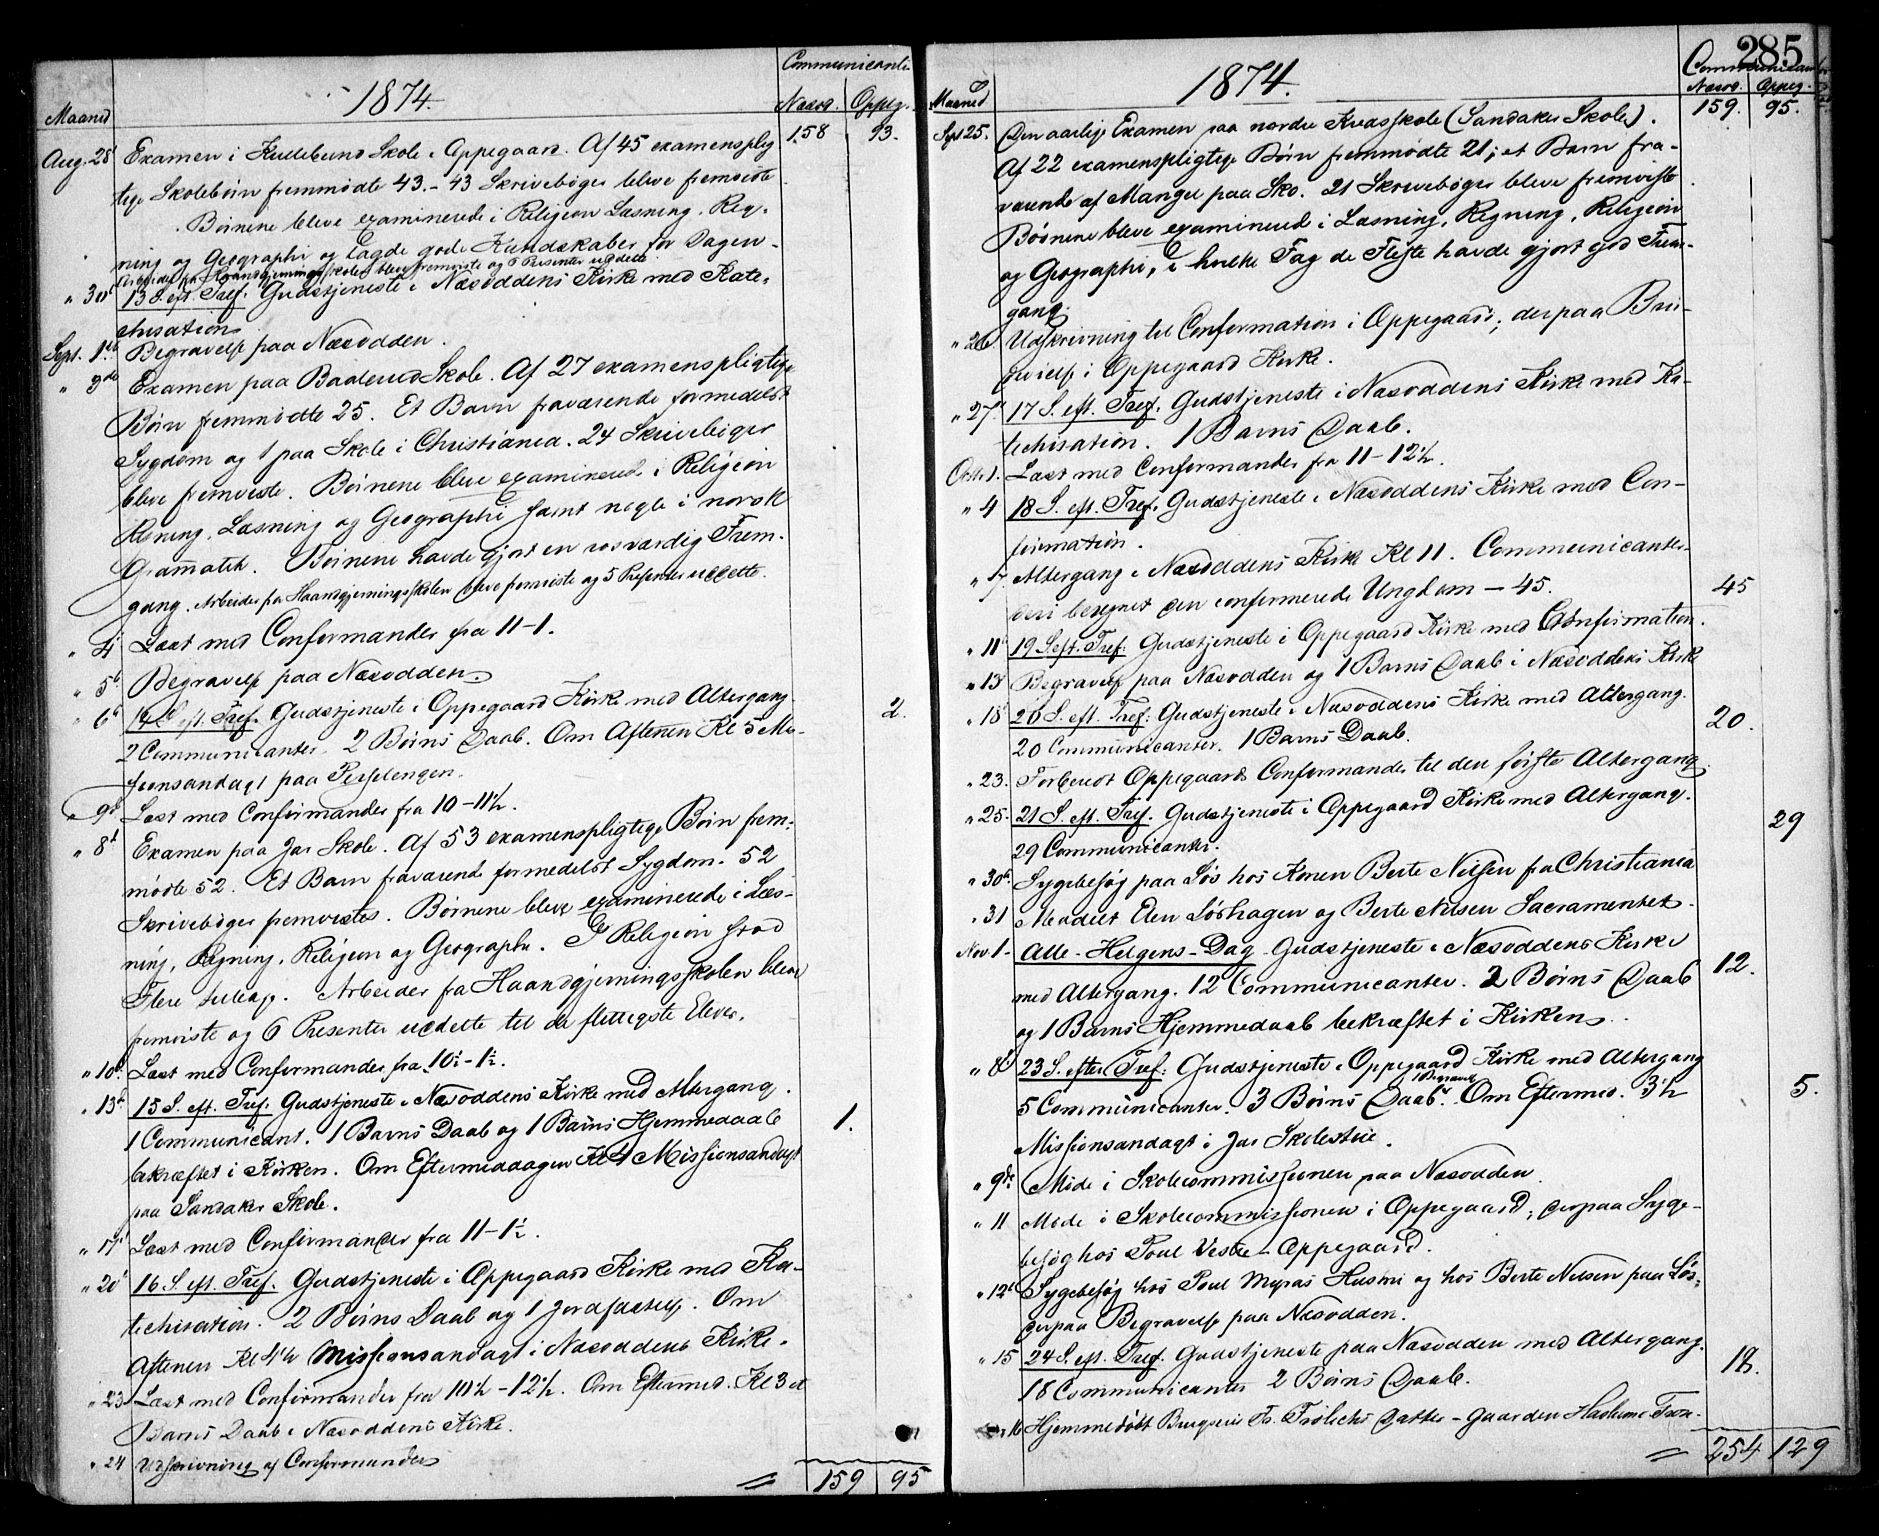 1874.
Communicanter
Maaned
Næsod. Oppeg.
158 93.
Aug. 28 Examen i Kullebund Skole i Oppegaard. Af 45 examensplig
tige Skolebørn fremmødte 43. – 43 Skrivebøger bleve fremviste
Børnene bleve examinerede i Religion Læsning, Reg-
ning og Geographi og lagde gode Kundskaber for Dagen.
Arbeider fra Haandgjerningsskolen bleve fremviste og 6 Presenter uddelte.
" 30 13 S. eft. Tref. Gudstjeneste i Næsoddens Kirke med Kate-
chisation
Sept. 1. Begravelse paa Næsodden.
" 3de Examen paa Baalerud Skole. Af 27 examenspligtige
Børn fremmødte 25. Et Barn fraværende formedelst
Sygdom og 1 paa Skole i Christiania. 24 Skrivebøger
bleve fremviste. Børnene bleve examinerede i Religion
Regning, Læsning og Geographi samt nogle i norsk
Gramatik. Børnene havde gjort en rosværdig Frem-
gang. Arbeider fra Haandgjerningsskolen bleve fremviste og 5 Presenter uddelte.
" 4 Læst med Confirmander fra 11–1.
" 5 Begravelse paa Næsodden
" 6 14 S. eft. Tref. Gudstjeneste i Oppegaard Kirke med Altergang 2.
2 Communicanter. 2 Børns Daab. Om Aftenen Kl 5 Mis-
sionsandagt paa
" 9 Læst med Confirmander fra 10–11½.
" 8 Examen paa Jar Skole. Af 53 examenspligtige Børn frem-
mødte 52. Et Barn fraværende formedelst Sygdom. 52
Skrivebøger fremvistes. Børnene bleve examinerede i Læs-
ning, Regning, Religion og Geographi. I Religion stod
Flere tilbage. Arbeider fra Haandgjerningsskolen bleve
fremviste og 6 Presenter uddelte til de flittigste Elever.
" 10 Læst med Confirmander fra 10½–1½.
" 13 15 S. eft. Tref. Gudstjeneste i Næsoddens Kirke med Altergang.
1 Communicant. 1 Barns Daab og 1 Barns Hjemmedaab 1.
bekræftet i Kirken. Om Eftermiddagen Kl 4 Missionsandagt
paa Sandaker Skole.
" 17 Læst med Confirmander fra 11–1½.
" 20 16 S. eft. Tref. Gudstjeneste i Oppegaard Kirke med Ka-
techisation. 2 Børns Daab og 1 Jordfæstelse. Om
Aftenen Kl 4½ Missionsandagt i Næsoddens Kirke.
" 23 Læst med Confirmander fra 10½–12½. Om Eftermid. Kl 3 et
Barns Daab i Næsoddens Kirke.
" 24 Udskrivning af Confirmander
159 95
285
1874.
Communicanter
Maaned
Næsod. Oppeg.
159. 95.
Sept 25. Den aarlige Examen paa nordre Kredsskole (Sandaker Skole).
Af 22 examenspligtige Børn fremmødte 21; et Barn fra-
værende af Mangel paa Sko. 21 Skrivebøger bleve fremviste
Børnene bleve examinered i Læsning, Regning, Religion
og Geographi, i hvilke Fag de Fleste havde gjort god Frem-
gang.
" 26 Udskrivning til Confirmation i Oppegaard; derpaa Bru-
devielse i Oppegaard Kirke.
" 27. 17 S. eft. Tref. Gudstjeneste i Næsoddens Kirke med Ka-
techisation. 1 Barns Daab.
Octb. 1. Læst med Confirmander fra 11–12½.
" 4 18 S. eft. Tref. Gudstjeneste i Næsoddens Kirke med Con-
firmation.
" 7 Altergang i Næsoddens Kirke Kl 11. Communicanter
deri beregnet den confirmerede Ungdom – 45. 45
" 11 19 S. eft. Tref. Gudstjeneste i Oppegaard Kirke med Confirmation.
" 13 Begravelse paa Næsodden og 1 Barns Daab i Næsoddens Kirke
" 18 20 S. eft. Tref. Gudstjeneste i Næsoddens Kirke med Altergang.
20 Communicanter. 1 Barns Daab. 20.
" 23. Forberedt Oppegaards Confirmander til den første Altergang.
" 25. 21 S. eft. Tref. Gudstjeneste i Oppegaard Kirke med Altergang.
29 Communicanter. 29
" 30 Sygebesøg paa Løs hos Konen Berte Nilsen fra Christiania
" 31 Meddelt Elen Løshagen og Berte Nilsen Sacramentet.
Nov 1 - Alle-Helgens-Dag. Gudstjeneste i Næsoddens Kirke
med Altergang. 12 Communicanter. 2 Børns Daab 12.
og 1 Barns Hjemmedaab bekræftet i Kirken.
" 8 23 S. efter Tref: Gudstjeneste i Oppegaard Kirke med Altergang
5 Communicanter. 3 Børns Daab. 1 Begravelse Om Eftermid. 3½ 5.
Missionsandagt i Jar Skolestue.
" 9de Møde i Skolecommissionen paa Næsodden
" 11 Møde i Skolecommissionen i Oppegaard; derpaa Syge-
besøg hos Poul Vestre-Oppegaard.
" 12 Sygebesøg hos Poul Myras Hustru og hos Berte Nilsen paa Løs;
derpaa Begravelse paa Næsodden.
" 15 24 S. eft. Tref. Gudstjeneste paa Næsodden med Altergang.
18 Communicanter 2 Børns Daab. 18.
" 16 Hjemmedøbt Fr. Frølichs Datter – Gaarden
254 129